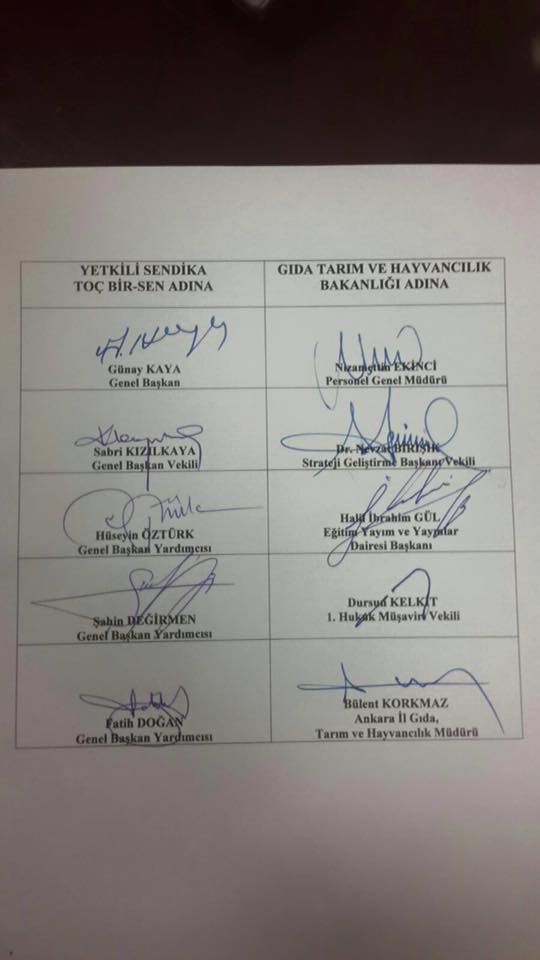 YETKİLİ SENDİKA
TOÇ BİR-SEN ADINA
GIDA TARIM VE HAYVANCILIK
BAKANLIĞI ADINA
Günay KAYA
Genel Başkan
Nizamettin EKİNCİ
Personel Genel Müdürü
Sabri KIZILKAYA
Genel Başkan Vekili
Dr. Nevzat BİRİŞİK
Strateji Geliştirme Başkanı Vekili
Hüseyin ÖZTÜRK
Genel Başkan Yardımcısı
Halil İbrahim GÜL
Eğitim Yayım ve Yayınlar
Dairesi Başkanı
Şahin DEĞİRMEN
Genel Başkan Yardımcısı
Dursun KELKİT
1. Hukuk Müşaviri Vekili
Fatih DOĞAN
Genel Başkan Yardımcısı
Bülent KORKMAZ
Ankara İl Gıda,
Tarım ve Hayvancılık Müdürü